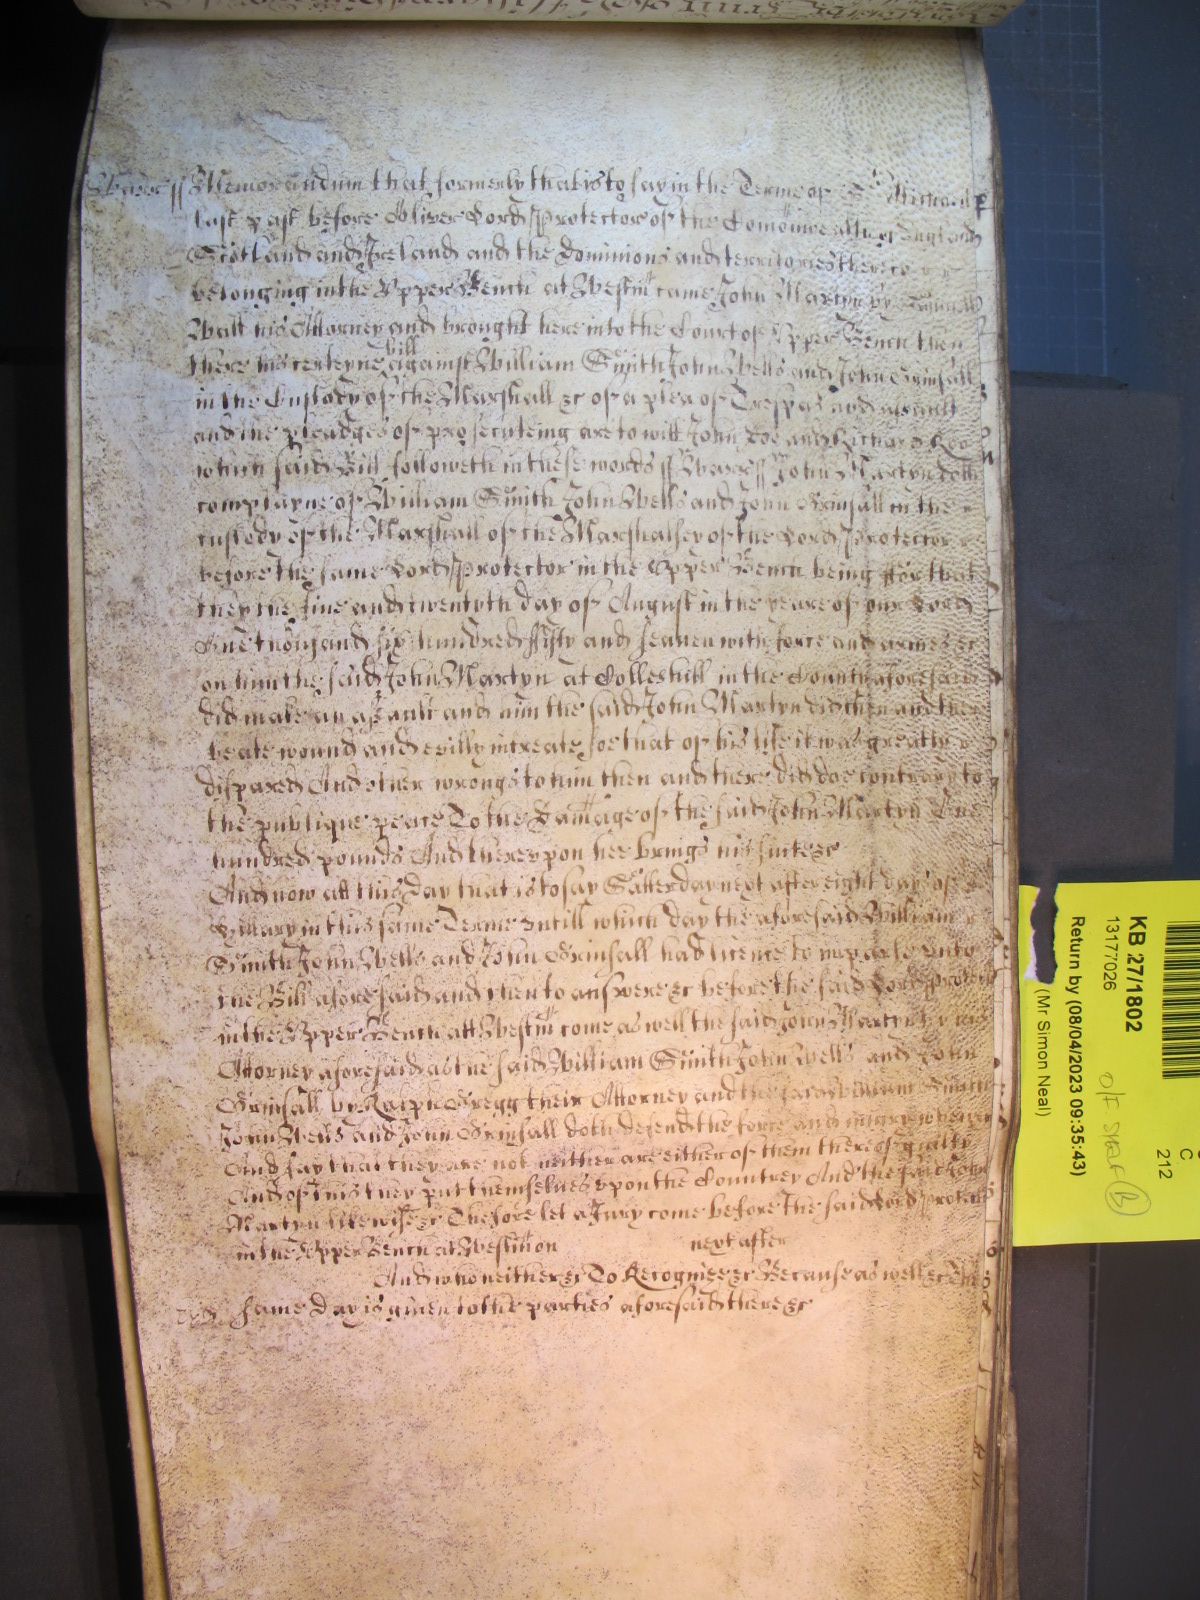 Warr ss Memorandum that formerly that is to say in the Terme of St Michaell
last past before Oliver Lord Protector of the Comonwealth of England
Scotland and Ireland and the dominions and territories thereto
belonging in the Upper Bench at Westm came John Martyn by
Watt his Attorney and brought here into the Court of Upper Bench then
there his certeyne bill against William Smith John Wells and John Grinsall
in the Custody of the Marshall &c of a plea of Trespas and assault
and the pleadges of prosecuteing are to witt John Doe and Richard Roe
which said Bill followeth in these words ss Warr ss John Martyn doth
complayne of William Smith John Wells and John Grinsall in the
custody of the Marshall of the Marshalsey of the Lord Protector
before the same Lord Protector in the Upper Bench being ffor that
they the five and twentyth day of August in the yeare of our Lord
One thousand six hundred ffifty and seaven with force and armes &c
on him the said John Martyn at Colleshill in the County aforesaid
did make an assault and him the said John Martyn did then and there
beate wound and evilly intreate soe that of his life it was greatly
dispared And other wrongs to him then and there did doe contrary to
the publique peace To the damage of the said John Martyn One
hundred pounds And thereupon hee brings his suite &c
And now att this day that is to say Satterday next after eight dayes of
Hillary in this same Terme untill which day the aforesaid William
Smith John Wells and John Grinsall had licence to imparle unto
the Bill aforesaid and then to answere &c before the said Lord Protector
in the Upper Bench att Westm come as well the said John Martyn by his
Attorney aforesaid as the said William Smith John Wells and John
Grinsall by Ralph Gregg their Attorney and the said William Smith
John Wells and John Grinsall doth defend the force and injury when &c
And say that they are not neither are either of them thereof guilty
And of this they put themselves upon the Countrey And the said John
Martyn likewise &c Thefore let a Jury come before the said Lord Protector
in the Upper Bench at Westm on next after
And who neither &c To Recognize &c Because as well &c The
same day is given to the parties aforesaid there &c
KB 27/1802
13177026
Return by (08/04/2023 09:35:43)
(Mr Simon Neal)
C
212